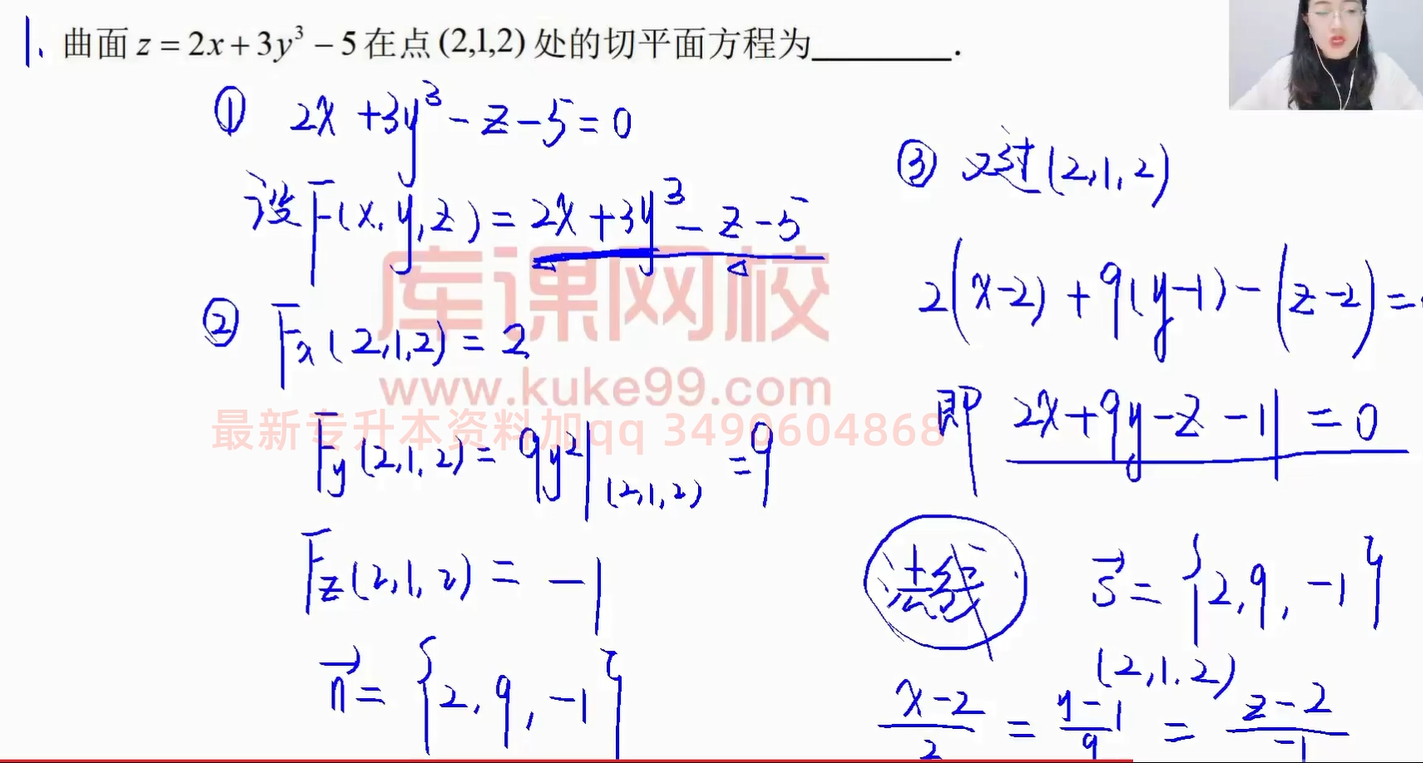 1. 曲面 z = 2x + 3y³ − 5 在点 (2,1,2) 处的切平面方程为________.
① 2x + 3y³ − z − 5 = 0
设 F(x, y, z) = 2x + 3y³ − z − 5
② Fx(2,1,2) = 2
Fy(2,1,2) = 9y²|(2,1,2) = 9
Fz(2,1,2) = −1
n⃗ = {2, 9, −1}
③ 又过(2,1,2)
2(x−2) + 9(y−1) − (z−2) =
即 2x + 9y − z − 11 = 0
法线 s⃗ = {2, 9, −1}
(2,1,2)
x−2/2 = y−1/9 = z−2/−1
库课网校
www.kuke99.com
最新专升本资料加qq 3490604868